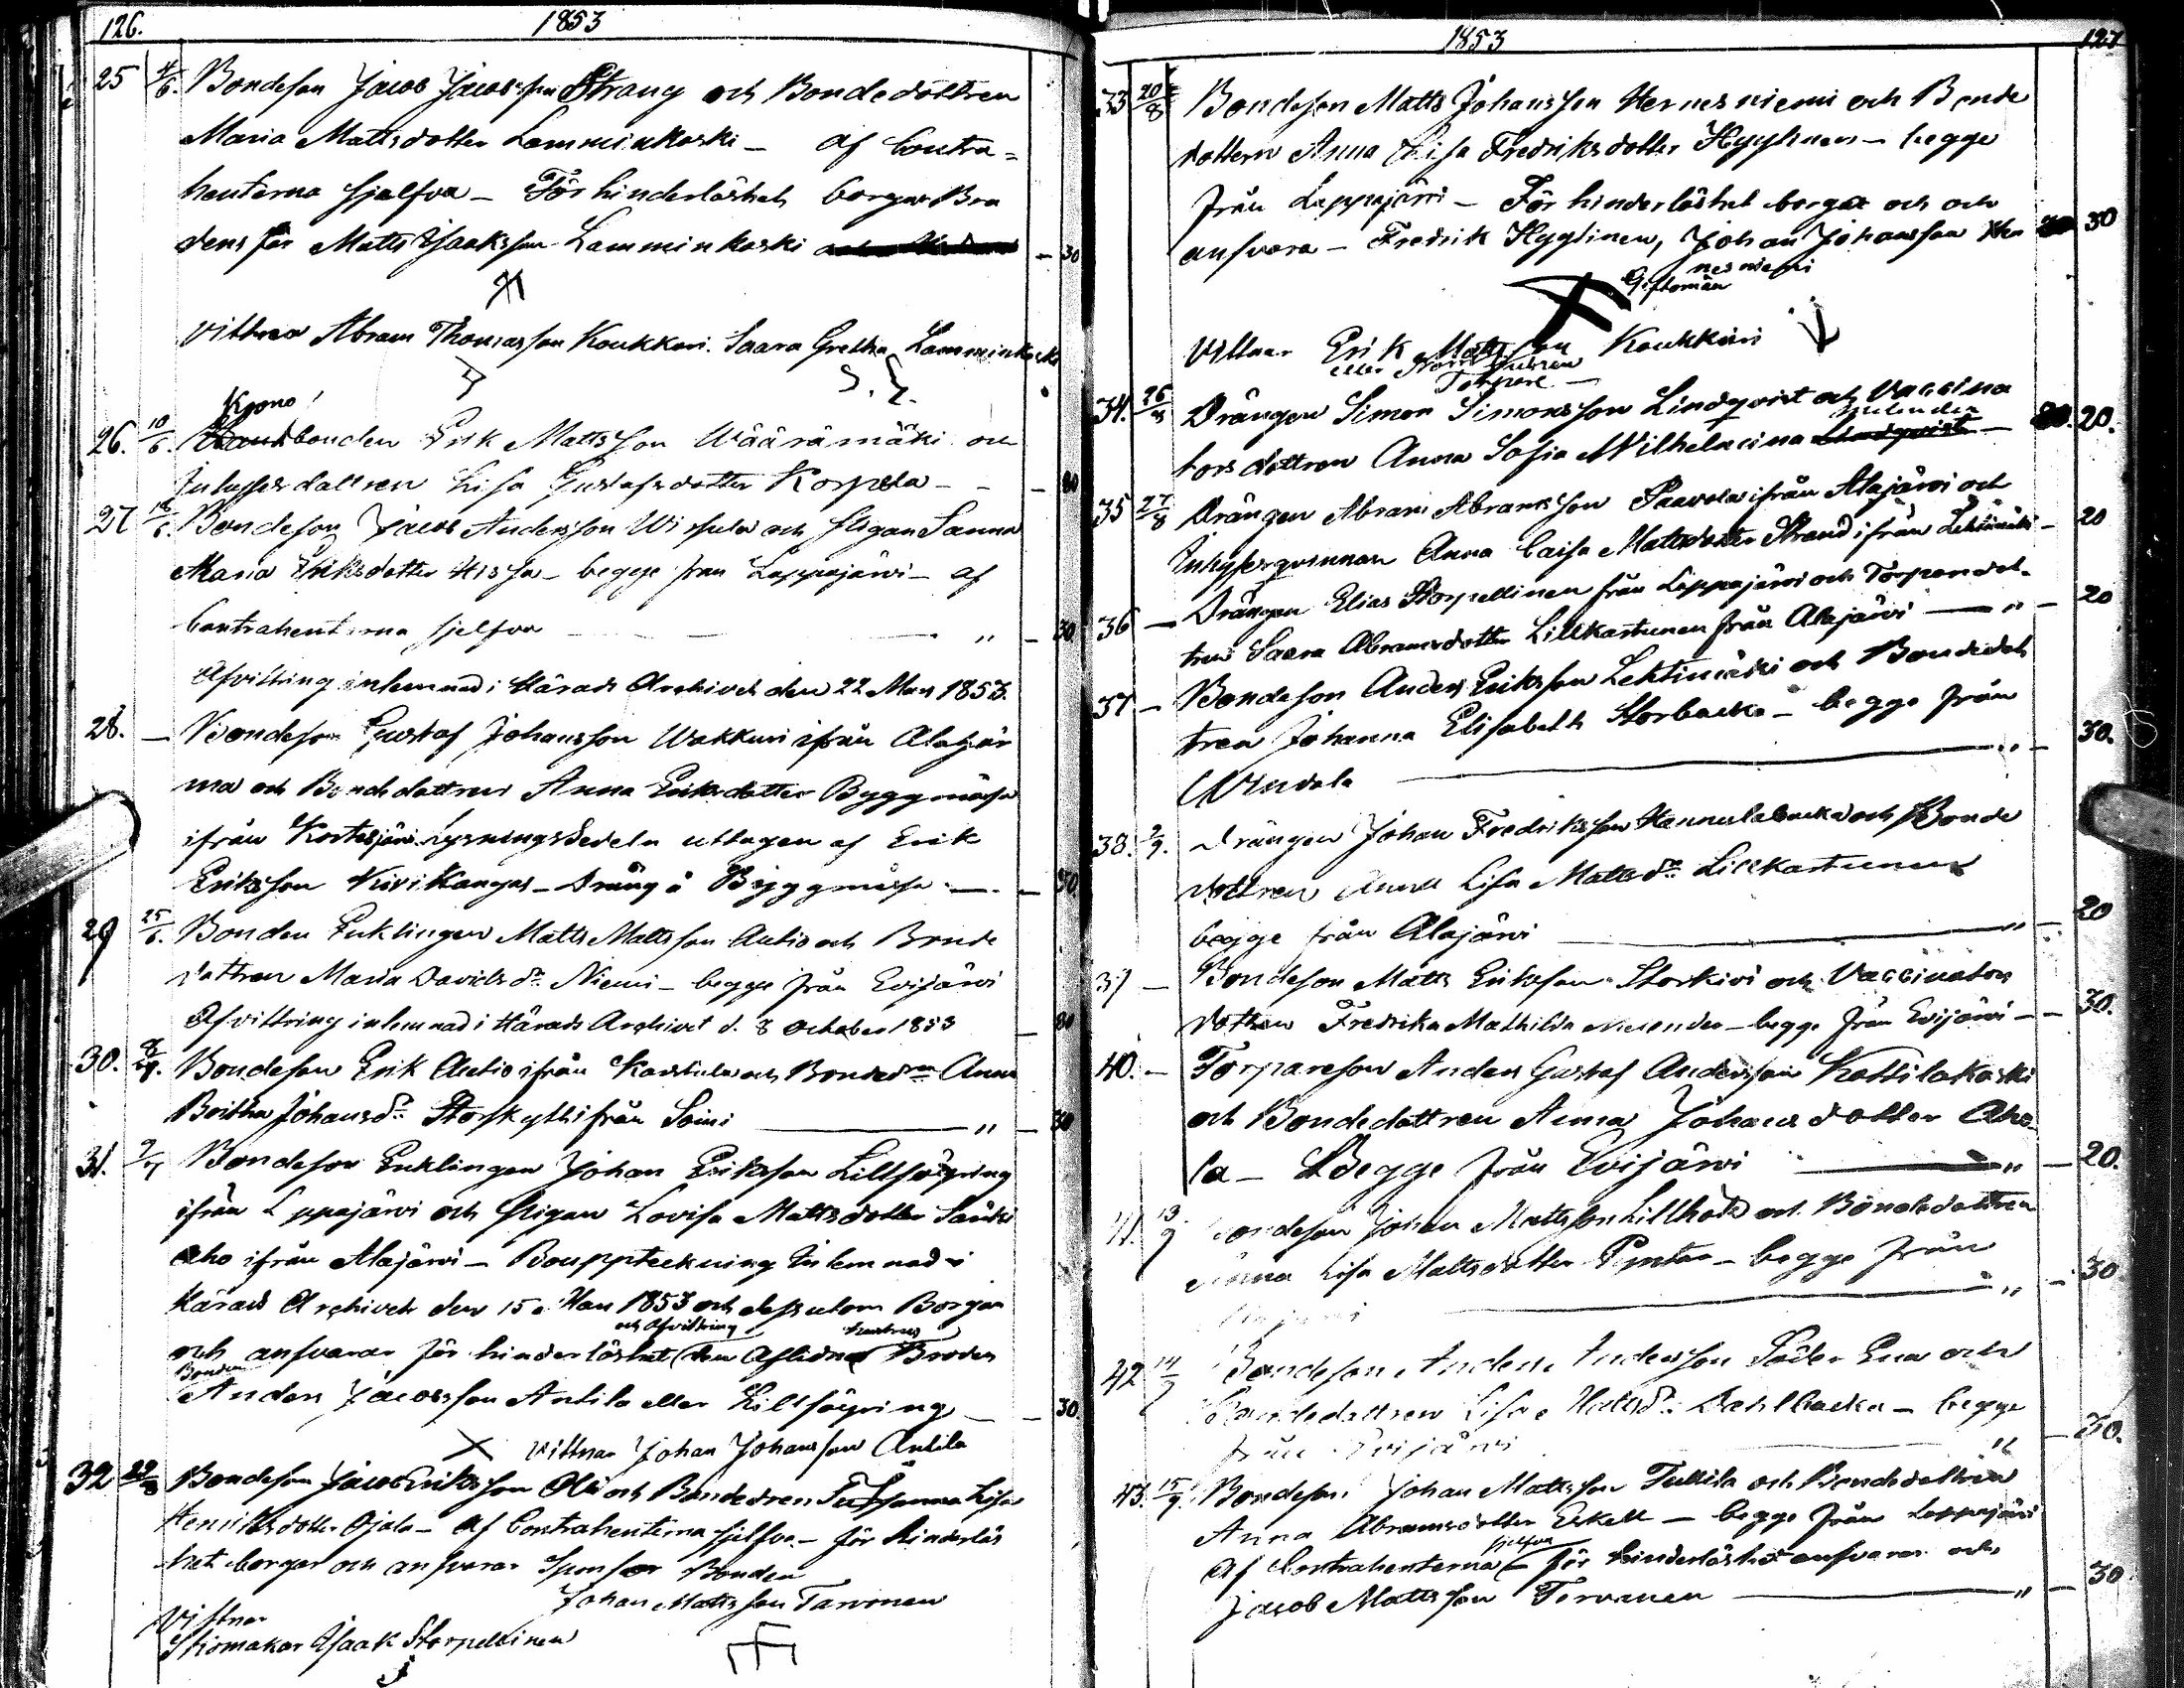 126. 1853
25 4/6. Bondeson Jacob Jacobsson Strang och Bondedottren
Maria Mattsdotter Lamminkoski – af Contra=
henterna sjelfva – För hinderlöshet borgar Bru
dens far Matts Isaksson Lamminkoski – 30
Vittnar Abram Thomasson Koukkari. Saara Gretha Lamminkoski
S. L.
Krono
26. 10/6. bonden Erik Mattsson Wäärämäki och
Inhysesdottren Lisa Gustafsdotter Korpela – –
27 18/6. Bondeson Jacob Andersson Wirkula och Pigan Sanna
Maria Eriksdotter – begge från Lappajärvi – af
Contrahenterna sjelfva " – 30
Afvittring inlemnad i Härads Archivet den 22 Mars 1853.
28. – Bondeson Gustaf Johansson Wakkuri ifrån Alahär
mä och Bondedottren Anna Eriksdotter Byggmäsa
ifrån Kortesjärvi. Lysningssedeln uttagen af Erik
Eriksson Kivikangas – Dräng å Byggmäsa – – 30
29 25/6. Bonden Enklingen Matts Mattsson Autio och Bonde
dottren Maria Davidsdr Niemi – begge från Evijärvi
Afvittring inlemnad i Härads Archivet d. 8 October 1853
30. Bondeson Erik Autio ifrån Karstula och Bondedrn Anna
Britha Johansdr Storkyttä ifrån Soini " – 30
31. Bondeson Enklingen Johan Eriksson Lillsäyring
ifrån Lappajärvi och Pigan Lovisa Mattsdotter
aho ifrån Alajärvi – Bouppteckning inlemnad i
Härads Archivet den 15 Mars 1853 och dessutom Borgar
och Afvittring
och ansvarar för hinderlöshet den Aflidna Broder
Bonden
Anders Jacobsson Antila eller Lillsäyring – – 30.
Vittnar Johan Johansson Antila
32 Bondeson Jacob Eriksson och Bondedren Susanna Lisa
Henriksdotter Ojala – Af Contrahenterna sjelfva – för hinderlös
het borgar och ansvarar Bonden
Johan Mattsson Tarvonen
Vittnar
Skomakar Isaak Storpellinen
1853 127
33 20/8 Bondeson Matts Johansson Hernesniemi och Bonde
dottern Anna Lisa Fredriksdotter Hyytinen – begge
från Lappajärvi – För hinderlöshet borgar och
ansvara – Fredrik Hyytinen, Johan Johansson Her 30
nesniemi
Giftoman
Vittnar Erik Mattsson Koukkari
34. 26/8 Drängen Simon Simonsson Lindqvist och Vaccina
torsdottren Anna Sofia Wilhelmina – 20.
35 27/8 Drängen Abram Abramsson Paavola ifrån Alajärvi och
Inhysesqvinnan Anna Caisa Mattsdotter Strand ifrån Lehtimäki – 20
36 – Drängen Elias Storpellinen från Lappajärvi och Torpardot=
tren Saara Abramsdotter Lillkastunen från Alajärvi " – 20
37 – Bondeson Anders Eriksson Lehtimäki och Bondedot
tren Johanna Elisabeth Storbacka – begge från
Windala " – 30.
38. 2/9. Drängen Johan Fredriksson Hannulabacka och Bonde
dottren Anna Lisa Mattsdr Lillkastunen
begge från Alajärvi " – 20
39 – Bondeson Matts Eriksson Storkivi och Vaccinators
dottren Fredrika Mathilda – begge från Evijärvi – – 30.
40. – Torpareson Anders Gustaf Andersson Kattilakoski
och Bondedottren Anna Johansdotter Aho
la – Begge från Evijärvi " – 20.
41. 13/9 Bondeson Johan Mattsson och Bondedottren
Anna Lisa Mattsdotter – begge från
" – 30
42 14/9 Bondeson Anders Andersson Söder och
Bondedottren Lisa Mattsdr Dahlbacka – begge
från Evijärvi " – 30.
43. 15/9. Bondeson Johan Mattsson och Bondedottren
Anna Abramsdotter Eskell – begge från Lappajärvi
sjelfva
Af Contrahenterna – för hinderlöshet ansvarar och
Jacob Mattsson " – 30